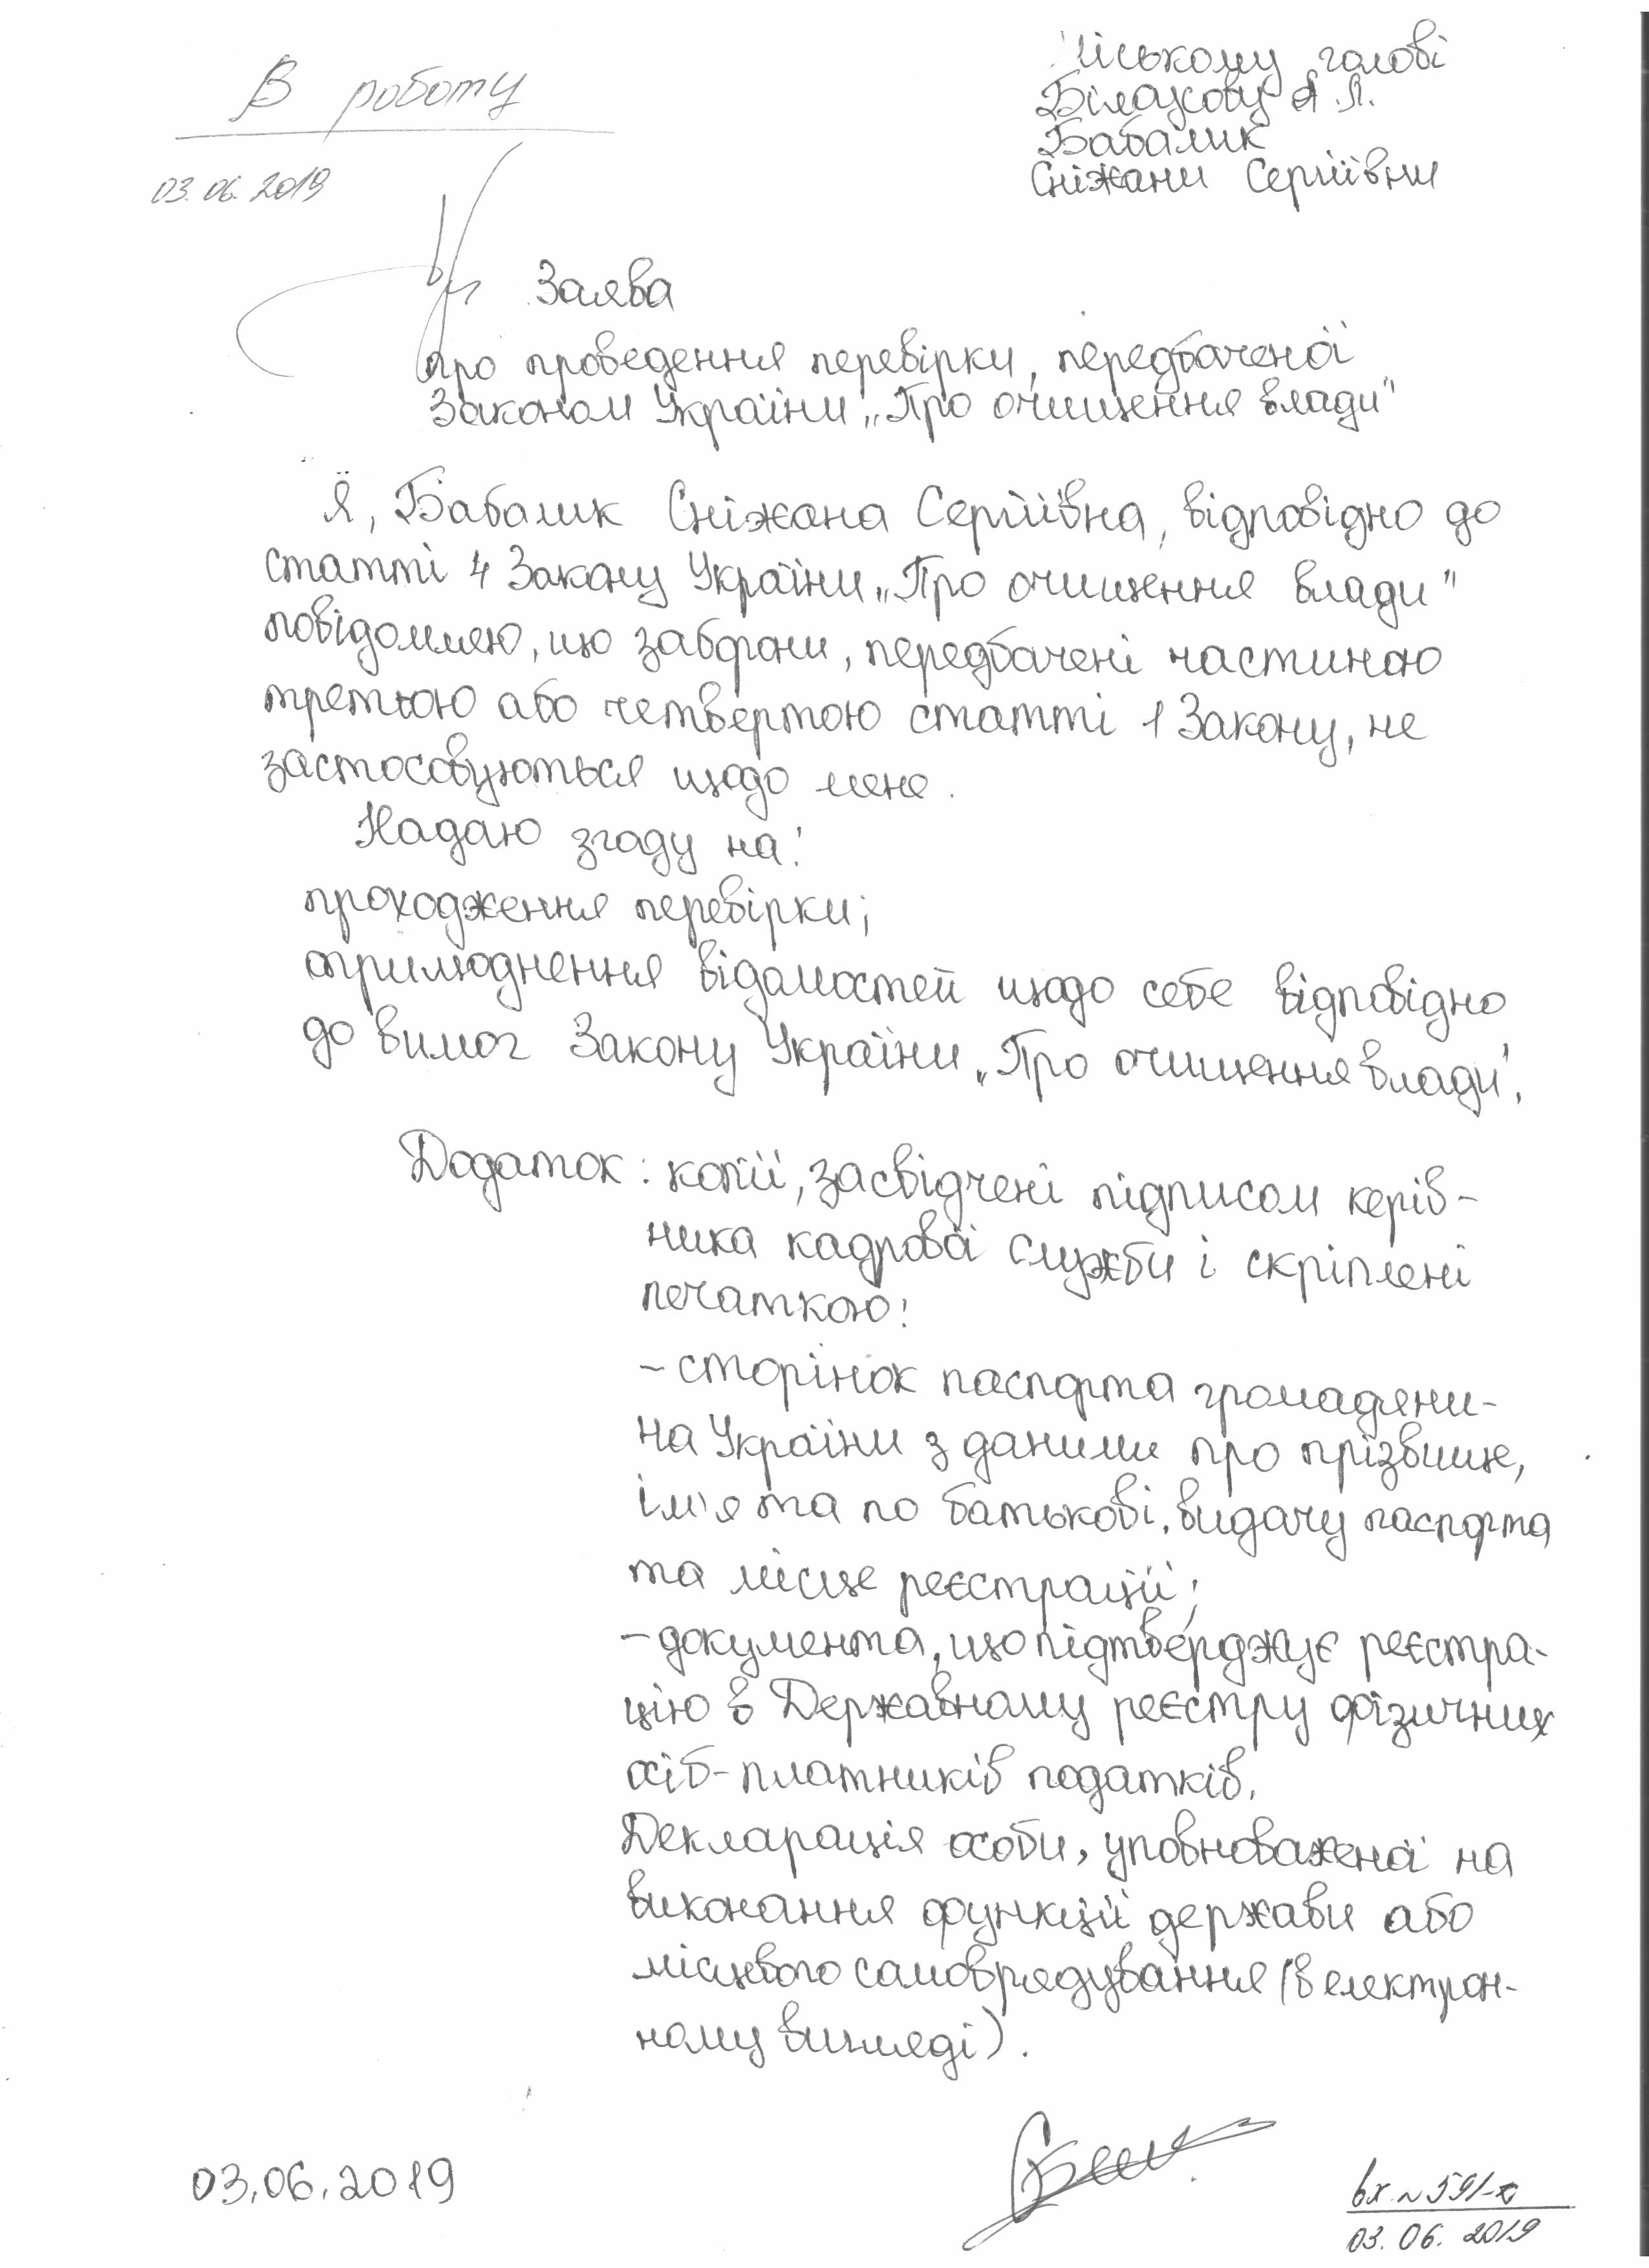 В роботу
03.06.2019
міському голові
Білоусову А.Л.
Бабалик
Сніжани Сергіївни
Заява
про проведення перевірки, передбаченої
Законом України „Про очищення влади"
Я, Бабалик Сніжана Сергіївна, відповідно до
статті 4 Закону України „Про очищення влади"
повідомляю, що заборони, передбачені частиною
третьою або четвертою статті 1 Закону, не
застосовуються щодо мене.
Надаю згоду на:
проходження перевірки;
оприлюднення відомостей щодо себе відповідно
до вимог Закону України „Про очищення влади".
Додаток: копії, засвідчені підписом керів-
ника кадрової служби і скріплені
печаткою:
- сторінок паспорта громадяни-
на України з даними про прізвище,
ім'я та по батькові, видачу паспорта
та місце реєстрації;
- документа, що підтверджує реєстра-
цію в Державному реєстру фізичних
осіб-платників податків.
Декларація особи, уповноваженої на
виконання функцій держави або
місцевого самоврядування (в електрон-
ному вигляді).
03.06.2019
вх. №591-к
03.06.2019